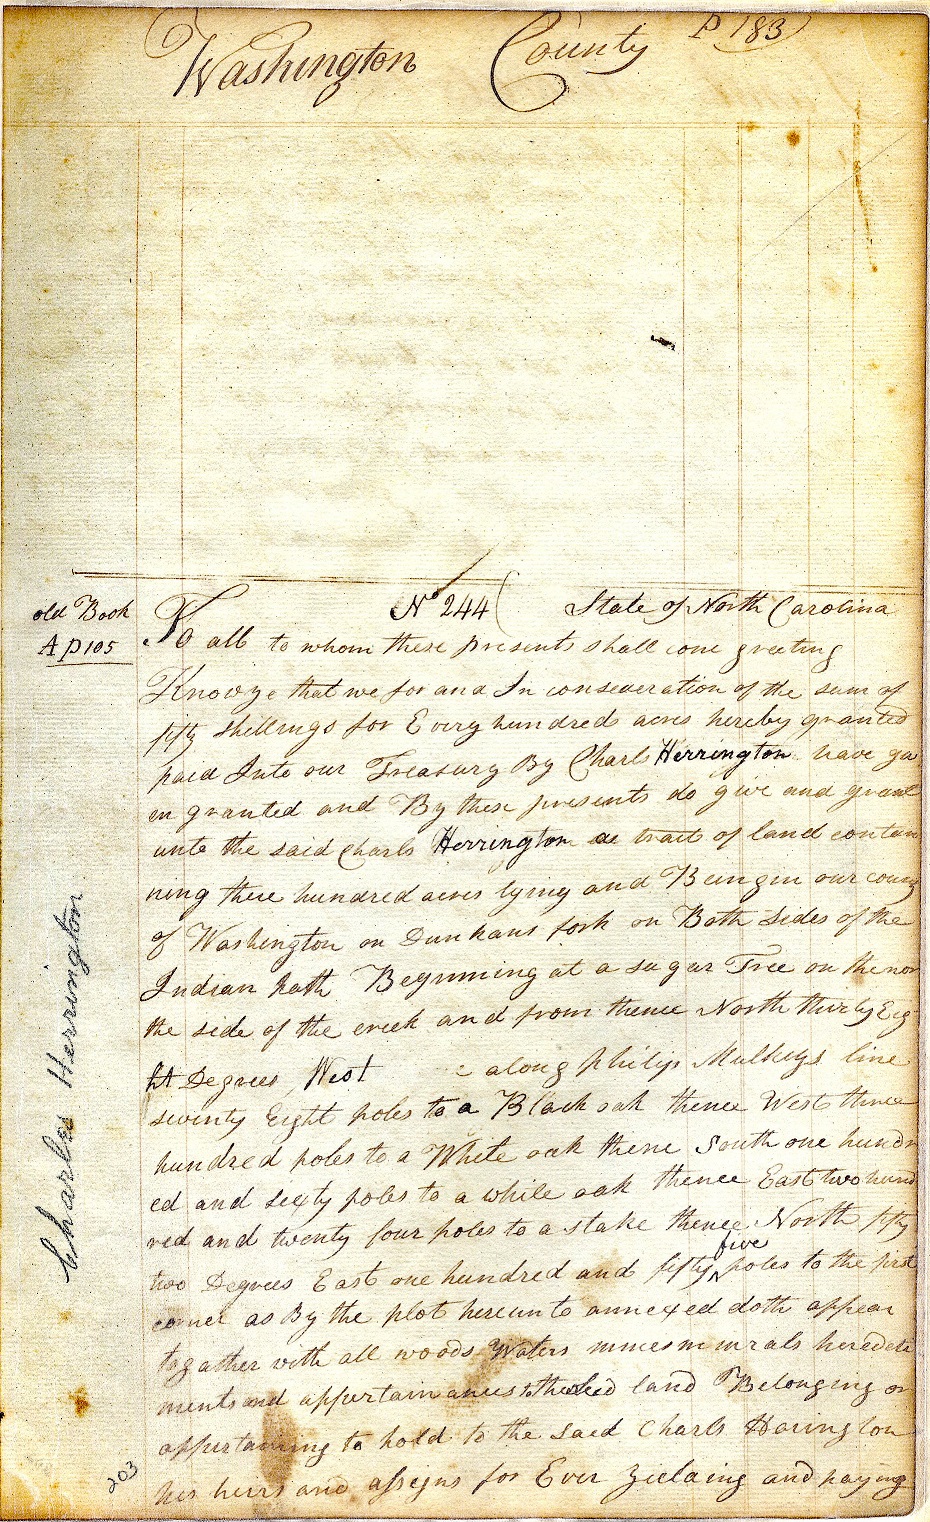 P 183
Washington County
old Book
A P 105
No 244 State of North Carolina
To all to whom these presents shall come greeting
Knowye that we for and In consederation of the sum of
fifty shillings for Every hundred acres hereby granted
paid Into our Treasury By Charls Herrington have gav
en granted and By these presents do give and grant
unto the said Charls Herrington a tract of land contan
ning three hundred acres lying and Being in our county
of Washington on Dunkans fork on Both Sides of the
Indian Path Begenning at a sugar Tree on the nor
the side of the creek and from thence North thirty Eig
ht Degrees West along Philip Mulkeys line
seventy Eight poles to a Black oak thence West three
hundred poles to a White oak thence South one hundr
ed and sixty poles to a white oak thence East two hund
red and twenty four poles to a stake thence North fifty
two Degrees East one hundred and fifty five poles to the first
corner as By the plot hereunto annexed doth appear
together with all woods Waters mines minirals heredeti
ments and appurtainances to the sed land Belonging or
appurtaining to hold to the said Charls Harington
his heirs and assegns for Ever yielding and paying
Charles Herrington
203